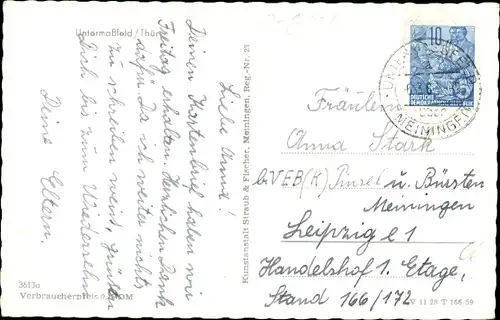 Untermaßfeld / Thür.
Liebe Anna!
Deinen Kartenbrief haben wir
Freitag erhalten. Herzlichen Dank
dafür. Da ich weiter nichts
zu schreiben weiß, grüßen
Dich bis zum Wiedersehn
Deine Eltern.
3613a
Verbraucherpreis DM
Kunstanstalt Straub & Fischer, Meiningen, Reg.-Nr. 23
10
DEUTSCHE
DEMOKRATISCHE
MEININGEN
Fräulein
Anna Stark
b. VEB (K) Pinsel u. Bürsten
Meiningen
Leipzig C 1
Handelshof 1. Etage,
Stand 166/172
V 11 28 T 166 59